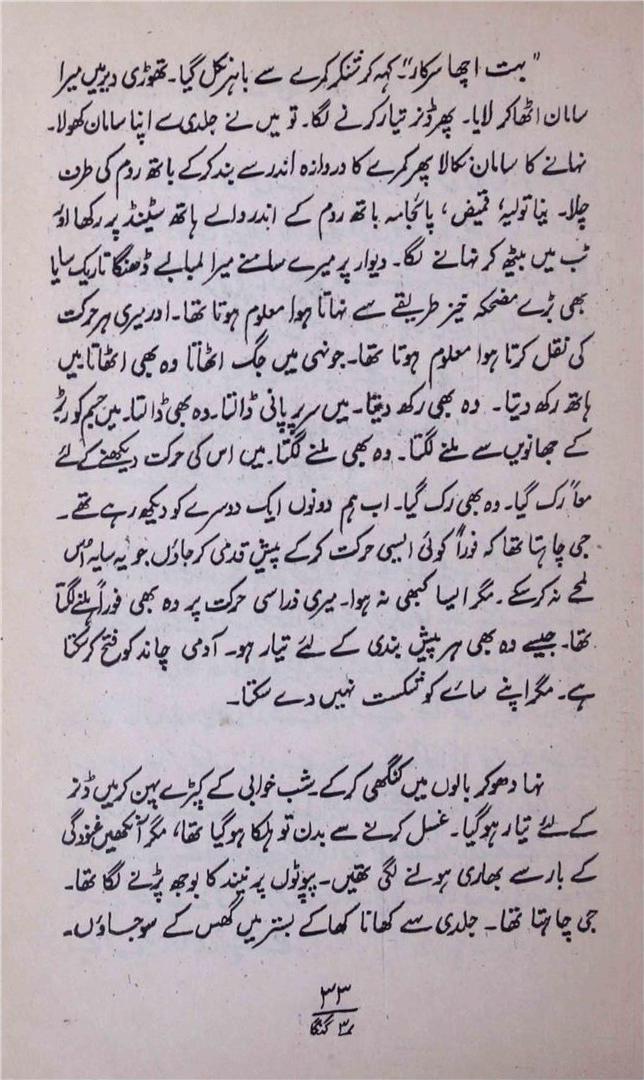 "بہت اچھا سرکار"۔ کہہ کر شنکر کمرے سے باہر نکل گیا۔ تھوڑی دیر میں میرا
سامان اٹھا کر لایا۔ پھر ڈنر تیار کرنے لگا۔ تو میں نے جلدی سے اپنا سامان کھولا۔
نہانے کا سامان نکالا پھر کمرے کا دروازہ اندر سے بند کرکے باتھ روم کی طرف
چلا۔ نیا تولیہ، قمیض، پائجامہ باتھ روم کے اندر والے ہاتھ سٹینڈ پر رکھا اور
ٹب میں بیٹھ کر نہانے لگا۔ دیوار پر میرے سامنے میرا لمبا بے ڈھنگا تاریک سایا
بھی بڑے مضحکہ خیز طریقے سے نہاتا ہوا معلوم ہوتا تھا۔ اور میری ہر حرکت
کی نقل کرتا ہوا معلوم ہوتا تھا۔ جونہی میں جگ اٹھاتا وہ بھی اٹھاتا میں
ہاتھ رکھ دیتا۔ وہ بھی رکھ دیتا۔ میں سر پر پانی ڈالتا۔ وہ بھی ڈالتا۔ میں جسم کو ربڑ
کے جھانویں سے ملنے لگتا۔ وہ بھی ملنے لگتا۔ میں اس کی حرکت دیکھنے کے لئے
معاً رک گیا۔ وہ بھی رک گیا۔ اب ہم دونوں ایک دوسرے کو دیکھ رہے تھے۔
جی چاہتا تھا کہ فوراً کوئی ایسی حرکت کرکے پیش قدمی کر جاؤں جو یہ سایہ اُس
لمحے نہ کرسکے۔ مگر ایسا کبھی نہ ہوا۔ میری ذرا سی حرکت پر وہ بھی فوراً ہلنے لگتا
تھا۔ جیسے وہ بھی ہر پیش بندی کے لئے تیار ہو۔ آدمی چاند کو فتح کرسکتا
ہے۔ مگر اپنے سائے کو شکست نہیں دے سکتا۔
نہا دھو کر بالوں میں کنگھی کرکے۔ شب خوابی کے کپڑے پہن کر میں ڈنر
کے لئے تیار ہوگیا۔ غسل کرنے سے بدن تو ہلکا ہوگیا تھا، مگر آنکھیں غنودگی
کے بار سے بھاری ہونے لگی تھیں۔ پپوٹوں پر نیند کا بوجھ پڑنے لگا تھا۔
جی چاہتا تھا۔ جلدی سے کھانا کھا کے بستر میں گھس کے سو جاؤں۔
۳۳
گنگا